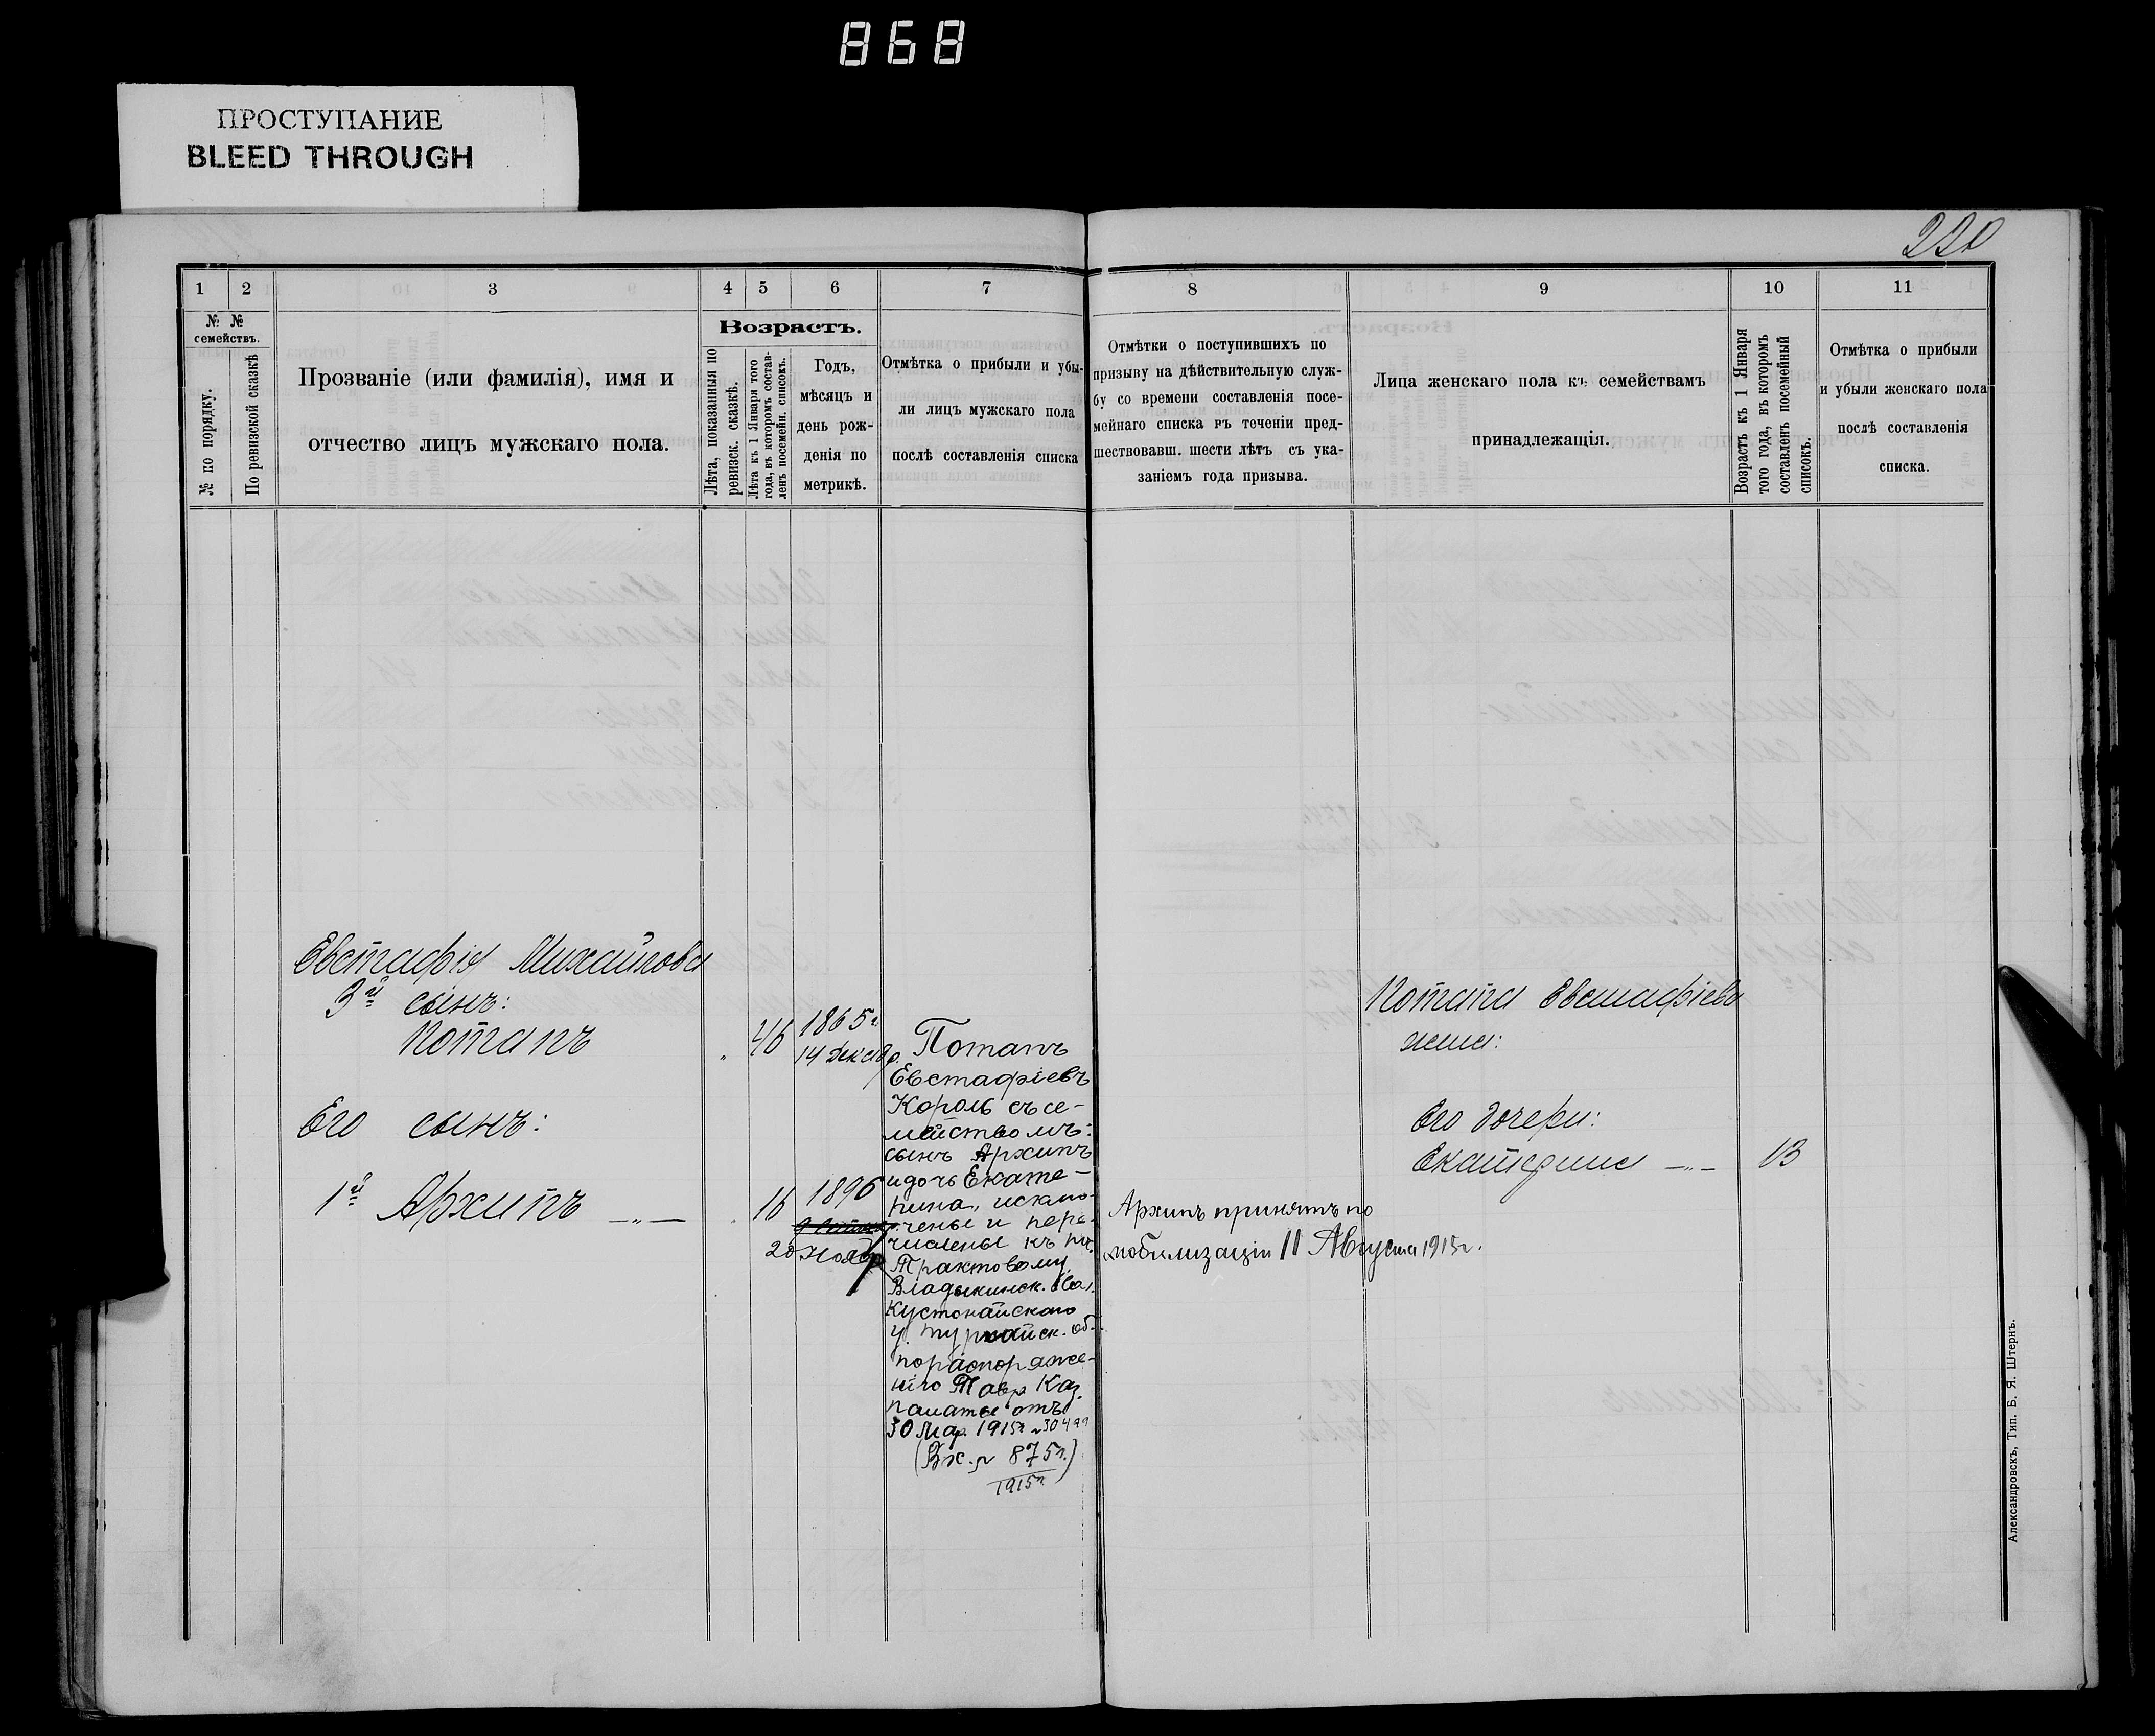 868
ПРОСТУПАНИЕ
BLEED THROUGH
220
1 2 3 4 5 6 7 8 9 10 11
№ № семействъ.
№ по порядку.
По ревизской сказкѣ
Прозваніе (или фамилія), имя и
отчество лицъ мужскаго пола.
Возрастъ.
Лѣта, показанныя по
ревизск. сказкѣ.
Лѣта къ 1 Января того
года, въ которомъ состав-
ленъ посемейн. списокъ.
Годъ,
мѣсяцъ и
день рож-
денія по
метрикѣ.
Отмѣтка о прибыли и убы-
ли лицъ мужскаго пола
послѣ составленія списка
Отмѣтки о поступившихъ по
призыву на дѣйствительную служ-
бу со времени составленія посе-
мейнаго списка въ теченіи пред-
шествовавш. шести лѣтъ съ ука-
заніемъ года призыва.
Лица женскаго пола къ семействамъ
принадлежащія.
Возрастъ къ 1 Января
того года, въ которомъ
составленъ посемейный
списокъ.
Отмѣтка о прибыли
и убыли женскаго пола
послѣ составленія
списка.
Евстафія Михайлова
3й сынъ:
Потапъ
46
1865 г.
14 Декабр.
Его сынъ:
1й Архипъ —„—
16
1896
20 Ноябр
Потапъ
Евстафіевъ
Король съ се-
мействомъ:
сынъ Архипъ
и дочь Екате-
рина, исклю-
чены и пере-
числены къ пос.
Трактовому,
Владыкинск. вол.
Кустонайскаго
у. Тургайск. об.
по распоряже-
нію Тавр Каз.
палаты отъ
30 Мар. 1915г. № 30499
(Вх. № 875 г.)
1915 г.
Архипъ принятъ по
мобилизаціи 11 Августа 1915 г.
Потапа Евстафіева
жена:
Его дочери:
Екатерина —„— 13
Александровскъ, Тип. Б. Я. Штернъ.